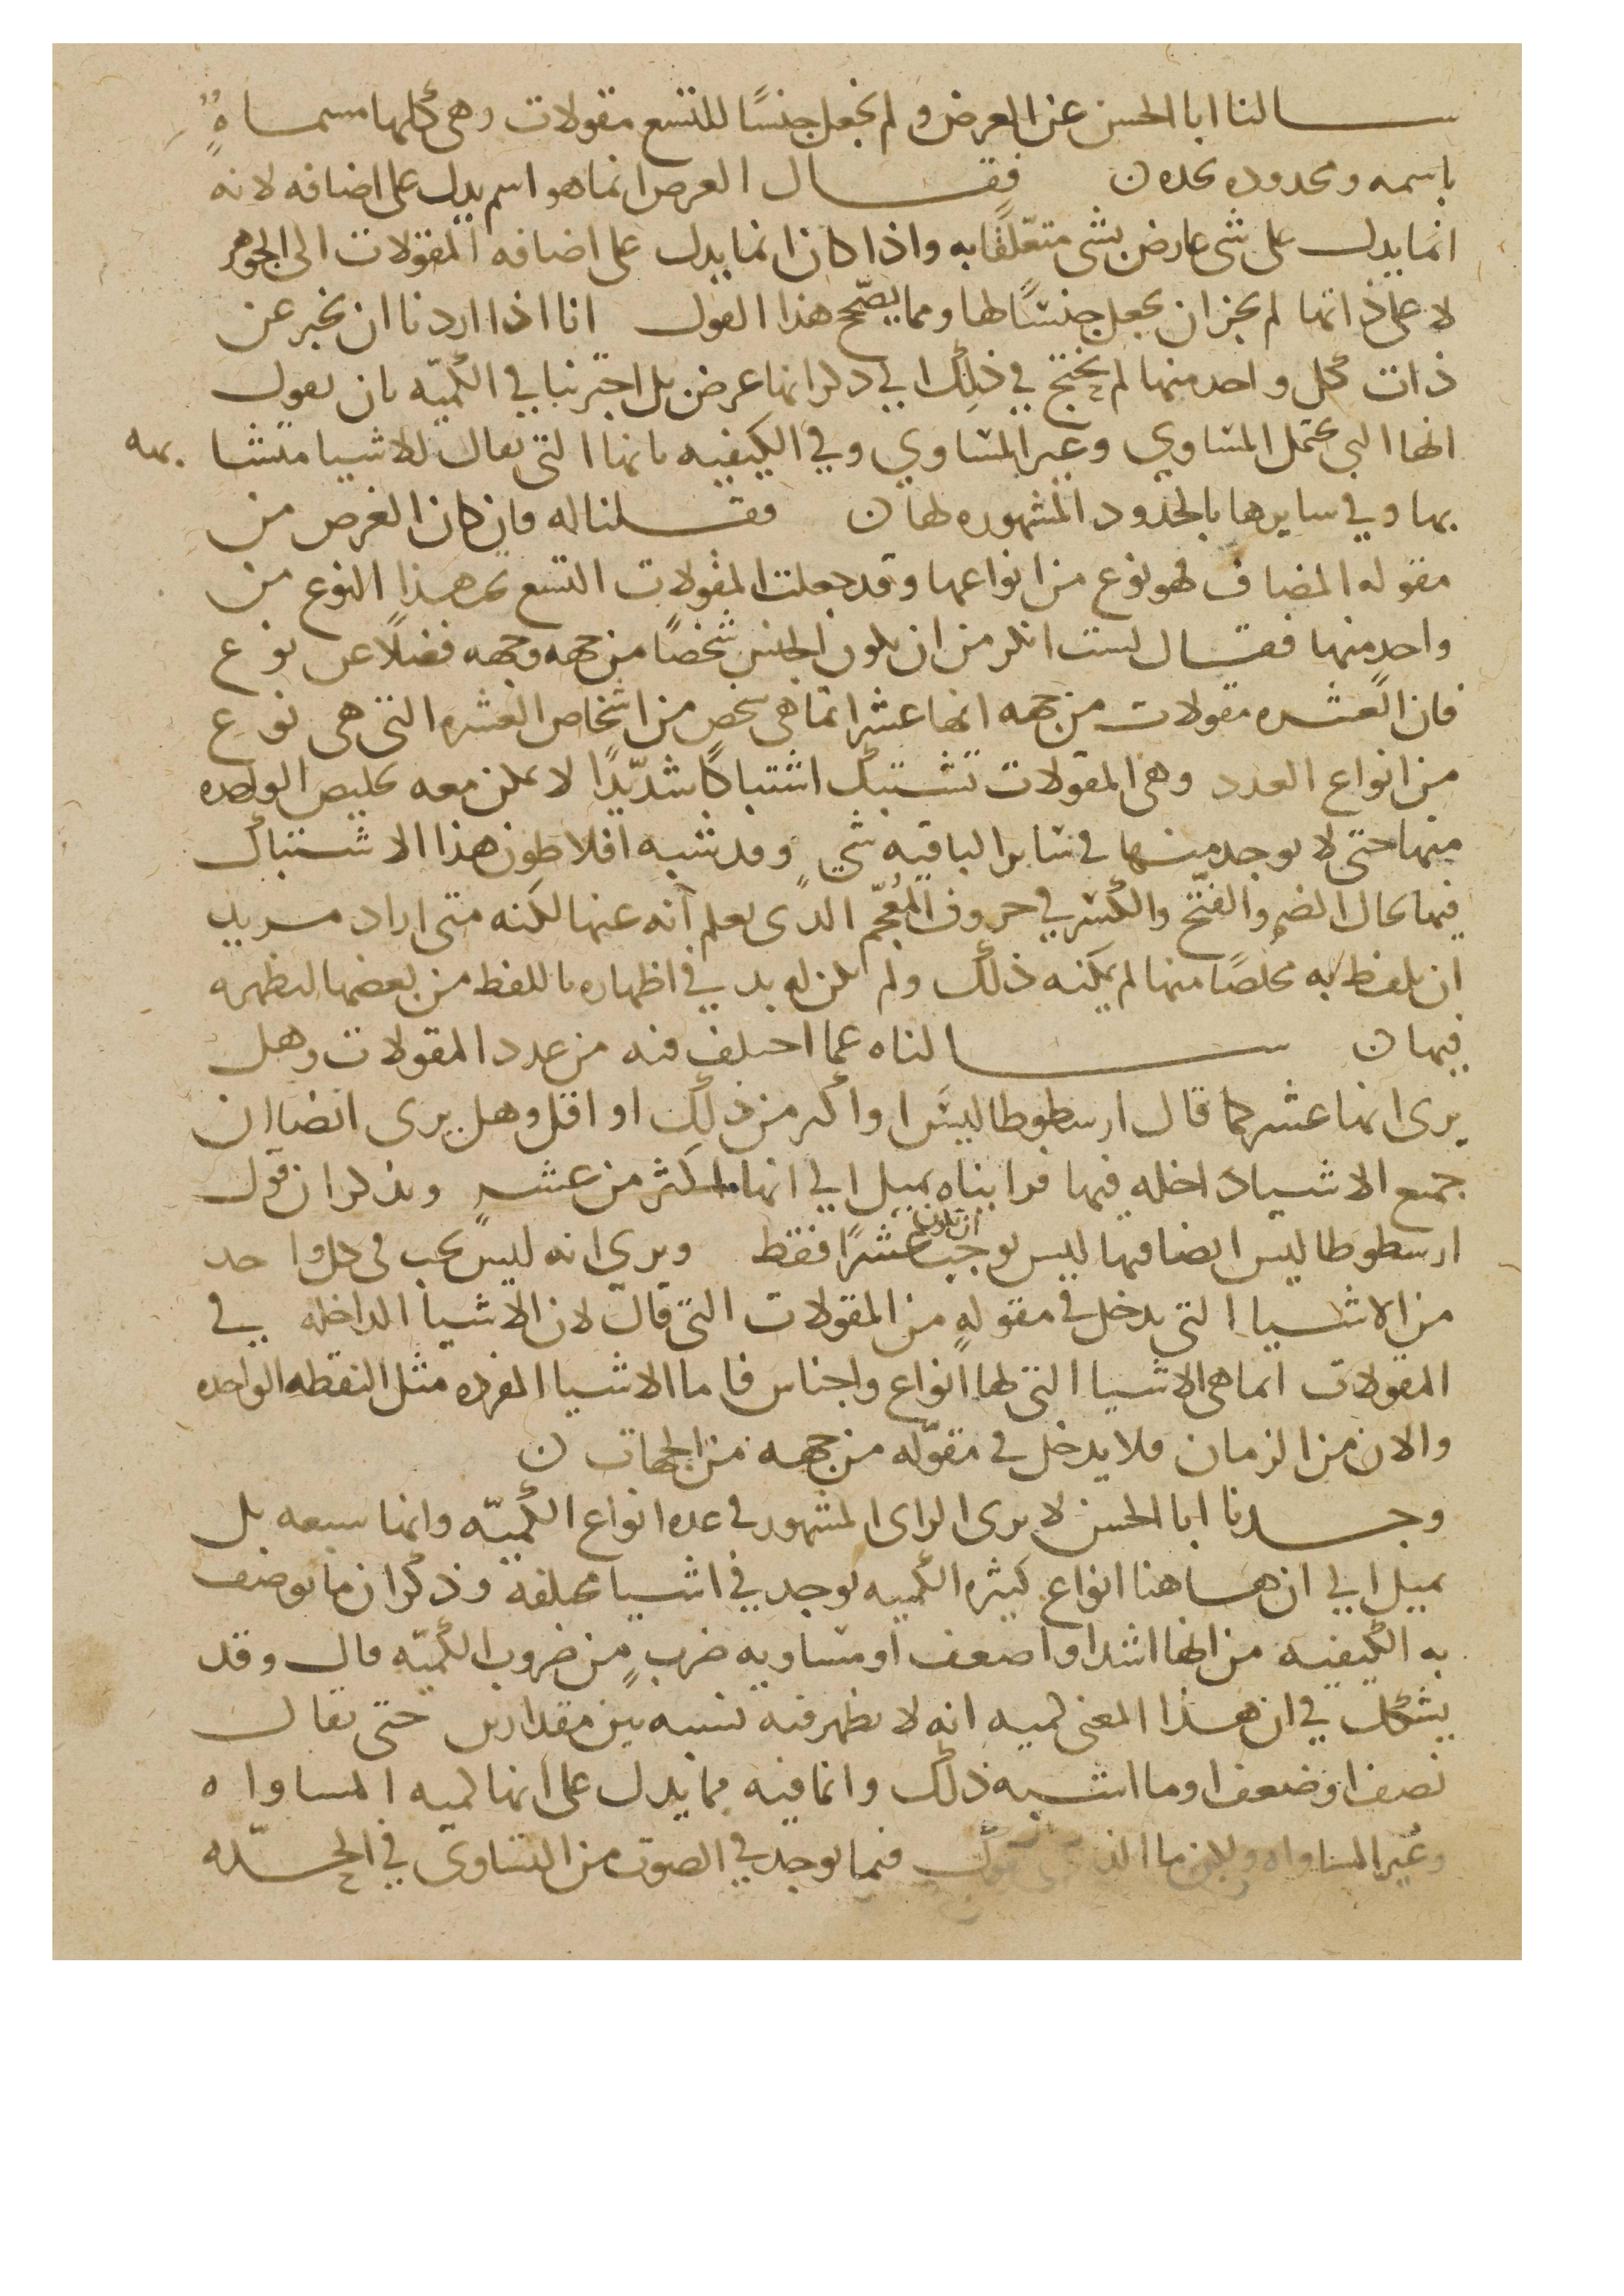 سالنا ابا الحسن عن العرض ولم يجعل جنسًا للتسع مقولات وهى كلها مسماةٌ
باسمه ومحدوده بحده ن فقال العرض انما هو اسم يدل على اضافه لانه
انما يدل على شى عارض بشى متعلقًا به واذا كان انما يدل على اضافه المقولات الى الجوهر
لا على ذاتها لم يجز ان يجعل جنسًا لها ومما يصحّح هذا القول انا اذا اردنا ان نخبر عن
ذات كل واحد منها لم نحتج في ذلك الي ذكر انها عرض بل اخبرنا في الكميّه بان نقول
انها التي تحتمل المساوي وغير المساوي وفي الكيفيه بانها التى يقال للاشيا متشابهه
بها وفي سايرها بالحدود المشهوره لها ن فقلنا له فان كان العرض من
مقوله المضاف فهو نوع من انواعها وقد جعلت المقولات التسع تحت هذا النوع من
واحدٍ منها فقال لست انكر من ان يكون الجنس شخصًا من جهه وجهه فضلًا عن نوع
فان العشره مقولات من جهه انها عشر انما هى شخص من اشخاص العشره التى هى نوع
من انواع العدد وهى المقولات تشتبك اشتباكًا شديدًا لا يمكن معه تخليص الواحده
منها حتى لا يوجد منها في ساير الباقيه شيٍ وقد شبه افلاطون هذا الاشتباك
فيها بحال الضم والفتح والكسر في حروف المُعجَم الذى يعلم انه عنها لكنه متى اراد مريد
ان يلفظ به مخلصًا منها لم يمكنه ذلك ولم يكن له بد في اظهاره باللفظ من بعضها ليظهره
فيها ن سالناه عما اختلف فيه من عدد المقولات وهل
يرى انها عشر كما قال ارسطوطاليس او اكثر من ذلك او اقل وهل يرى ايضا ان
جميع الاشيا داخله فيها فرايناه يميل الي انها اكثر من عشرٍ ويذكر ان قول
ارسطوطاليس ايضا فيها ليس يوجب ان تكون عشرًا فقط ويرى انه ليس يجب في كل واحد
من الاشيا التى يدخل في مقولهٍ من المقولات التى قال لان الاشيا الداخله في
المقولات انما هى الاشيا التى لها انواع واجناس فاما الاشيا المفرده مثل النقطه الواحده
والان من الزمان فلا يدخل في مقوله من جهه من الجهات ن
وجدنا ابا الحسن لا يرى الراى المشهور في عده انواع الكميّه وانها سبعه بل
يميل الي ان هاهنا انواع كثيره الكميه توجد في اشيا مختلفه وذكر ان ما يوصف
به الكيفيه من انها اشد او اضعف او مساويه ضربٍ من ضروب الكميّه قال وقد
يشكك في ان هذا المعنى كميه انه لا يظهر فيه نسبه بين مقدارين حتى يقال
نصف او ضعف او ما اشبه ذلك وانما فيه مما يدل على انها كميه المساواه
وغير المساواه وليت ما الذى يقول فيما يوجد في الصوت من التساوى في الحده